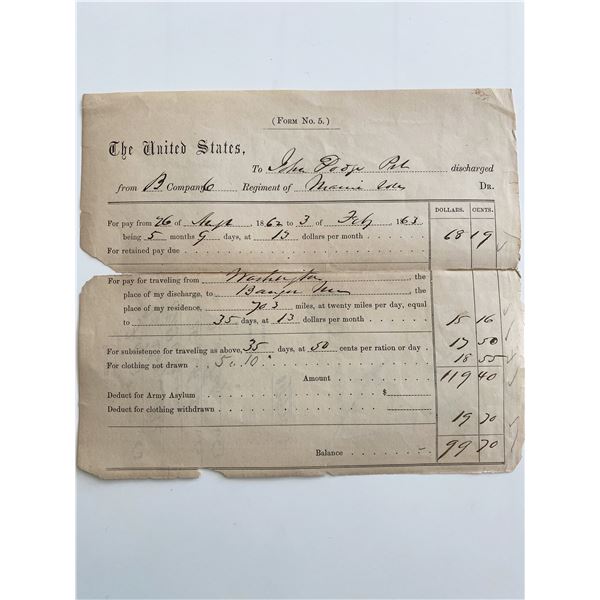 (FORM No. 5.)
The United States,
To John Dodge Prt discharged
from B Company 6 Regiment of Maine Vols DR.
DOLLARS. CENTS.
For pay from 26 of Sept 1862 to 3 of Feby 1863
being 5 months 9 days, at 13 dollars per month 68 19
For retained pay due
For pay for traveling from Washington the
place of my discharge, to Bangor Me the
place of my residence, 703 miles, at twenty miles per day, equal
to 35 days, at 13 dollars per month 15 16
For subsistence for traveling as above, 35 days, at 50 cents per ration or day 17 50
For clothing not drawn 18 55
Amount 119 40
Deduct for Army Asylum $
Deduct for clothing withdrawn 19 70
Balance 99 70